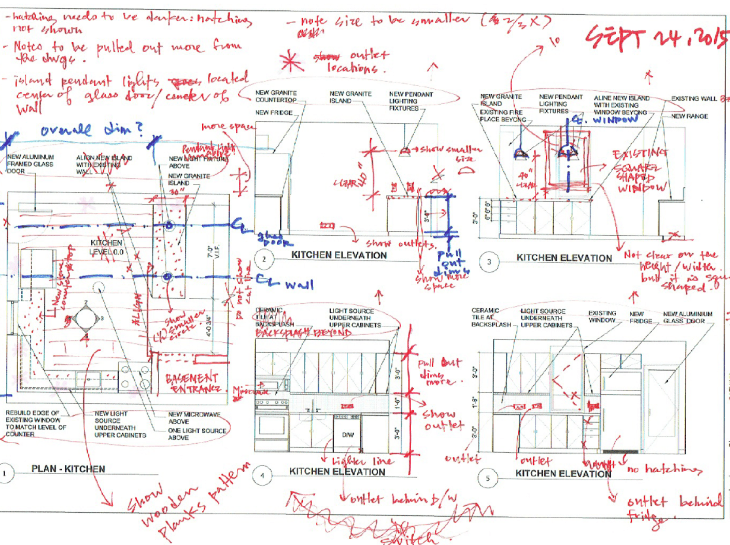 - hatching needs to be darker: hatching
not shown
- Notes to be pulled out more from
the dwgs.
- island pendant lights located
center of glass door/center of
wall
- note size to be smaller
show outlet
locations.
SEPT 24, 2015
overall dim?
more space
NEW ALUMINUM
FRAMED GLASS
DOOR
ALIGN NEW ISLAND
WITH EXISTING
WALL
NEW LIGHT FIXTURE
ABOVE
NEW GRANITE
ISLAND
KITCHEN
LEVEL 0.0
7'-0"
V.I.F.
CL glass
door
CL wall
do not show
ALIGN
show
smaller
circle
4'-0 3/4"
BASEMENT
ENTRANCE
REBUILD EDGE OF
EXISTING WINDOW
TO MATCH LEVEL OF
COUNTER
NEW LIGHT
SOURCE
UNDERNEATH
UPPER CABINETS
NEW MICROWAVE
ABOVE
ONE LIGHT SOURCE
ABOVE
1
PLAN - KITCHEN
show
wooden
planks pattern
NEW GRANITE
COUNTERTOP
NEW FRIDGE
NEW GRANITE
ISLAND
NEW PENDANT
LIGHTING
FIXTURES
show smaller
size
40"
CLEAR
3'-0"
show outlets.
pull
out
dims
show more
space
2
KITCHEN ELEVATION
NEW GRANITE
ISLAND
EXISTING FIRE
PLACE BEYONG
NEW PENDANT
LIGHTING
FIXTURES
ALINE NEW ISLAND
WITH EXISTING
WINDOW BEYONG
EXISTING WALL
NEW RANGE
CL WINDOW
40"
CLEAR
EXISTING
SQUARE
SHAPED
WINDOW
Not clear on the
height/width
but it is square
shaped.
3
KITCHEN ELEVATION
CERAMIC
TILE AT
BACKSPLASH
BACKSPLASH BEYOND
LIGHT SOURCE
UNDERNEATH
UPPER CABINETS
pull out
dims
more.
3'-0"
1'-6"
3'-0"
show
outlet
D/W
Lighter line
4
KITCHEN ELEVATION
outlet behind D/W
switch.
CERAMIC
TILE AT
BACKSPLASH
LIGHT SOURCE
UNDERNEATH
UPPER CABINETS
EXISTING
WINDOW
NEW
FRIDGE
NEW ALUMINUM
GLASS DOOR
3'-0"
1'-6"
3'-0"
outlet
outlet
no hatching
5
KITCHEN ELEVATION
outlet behind
fridge.